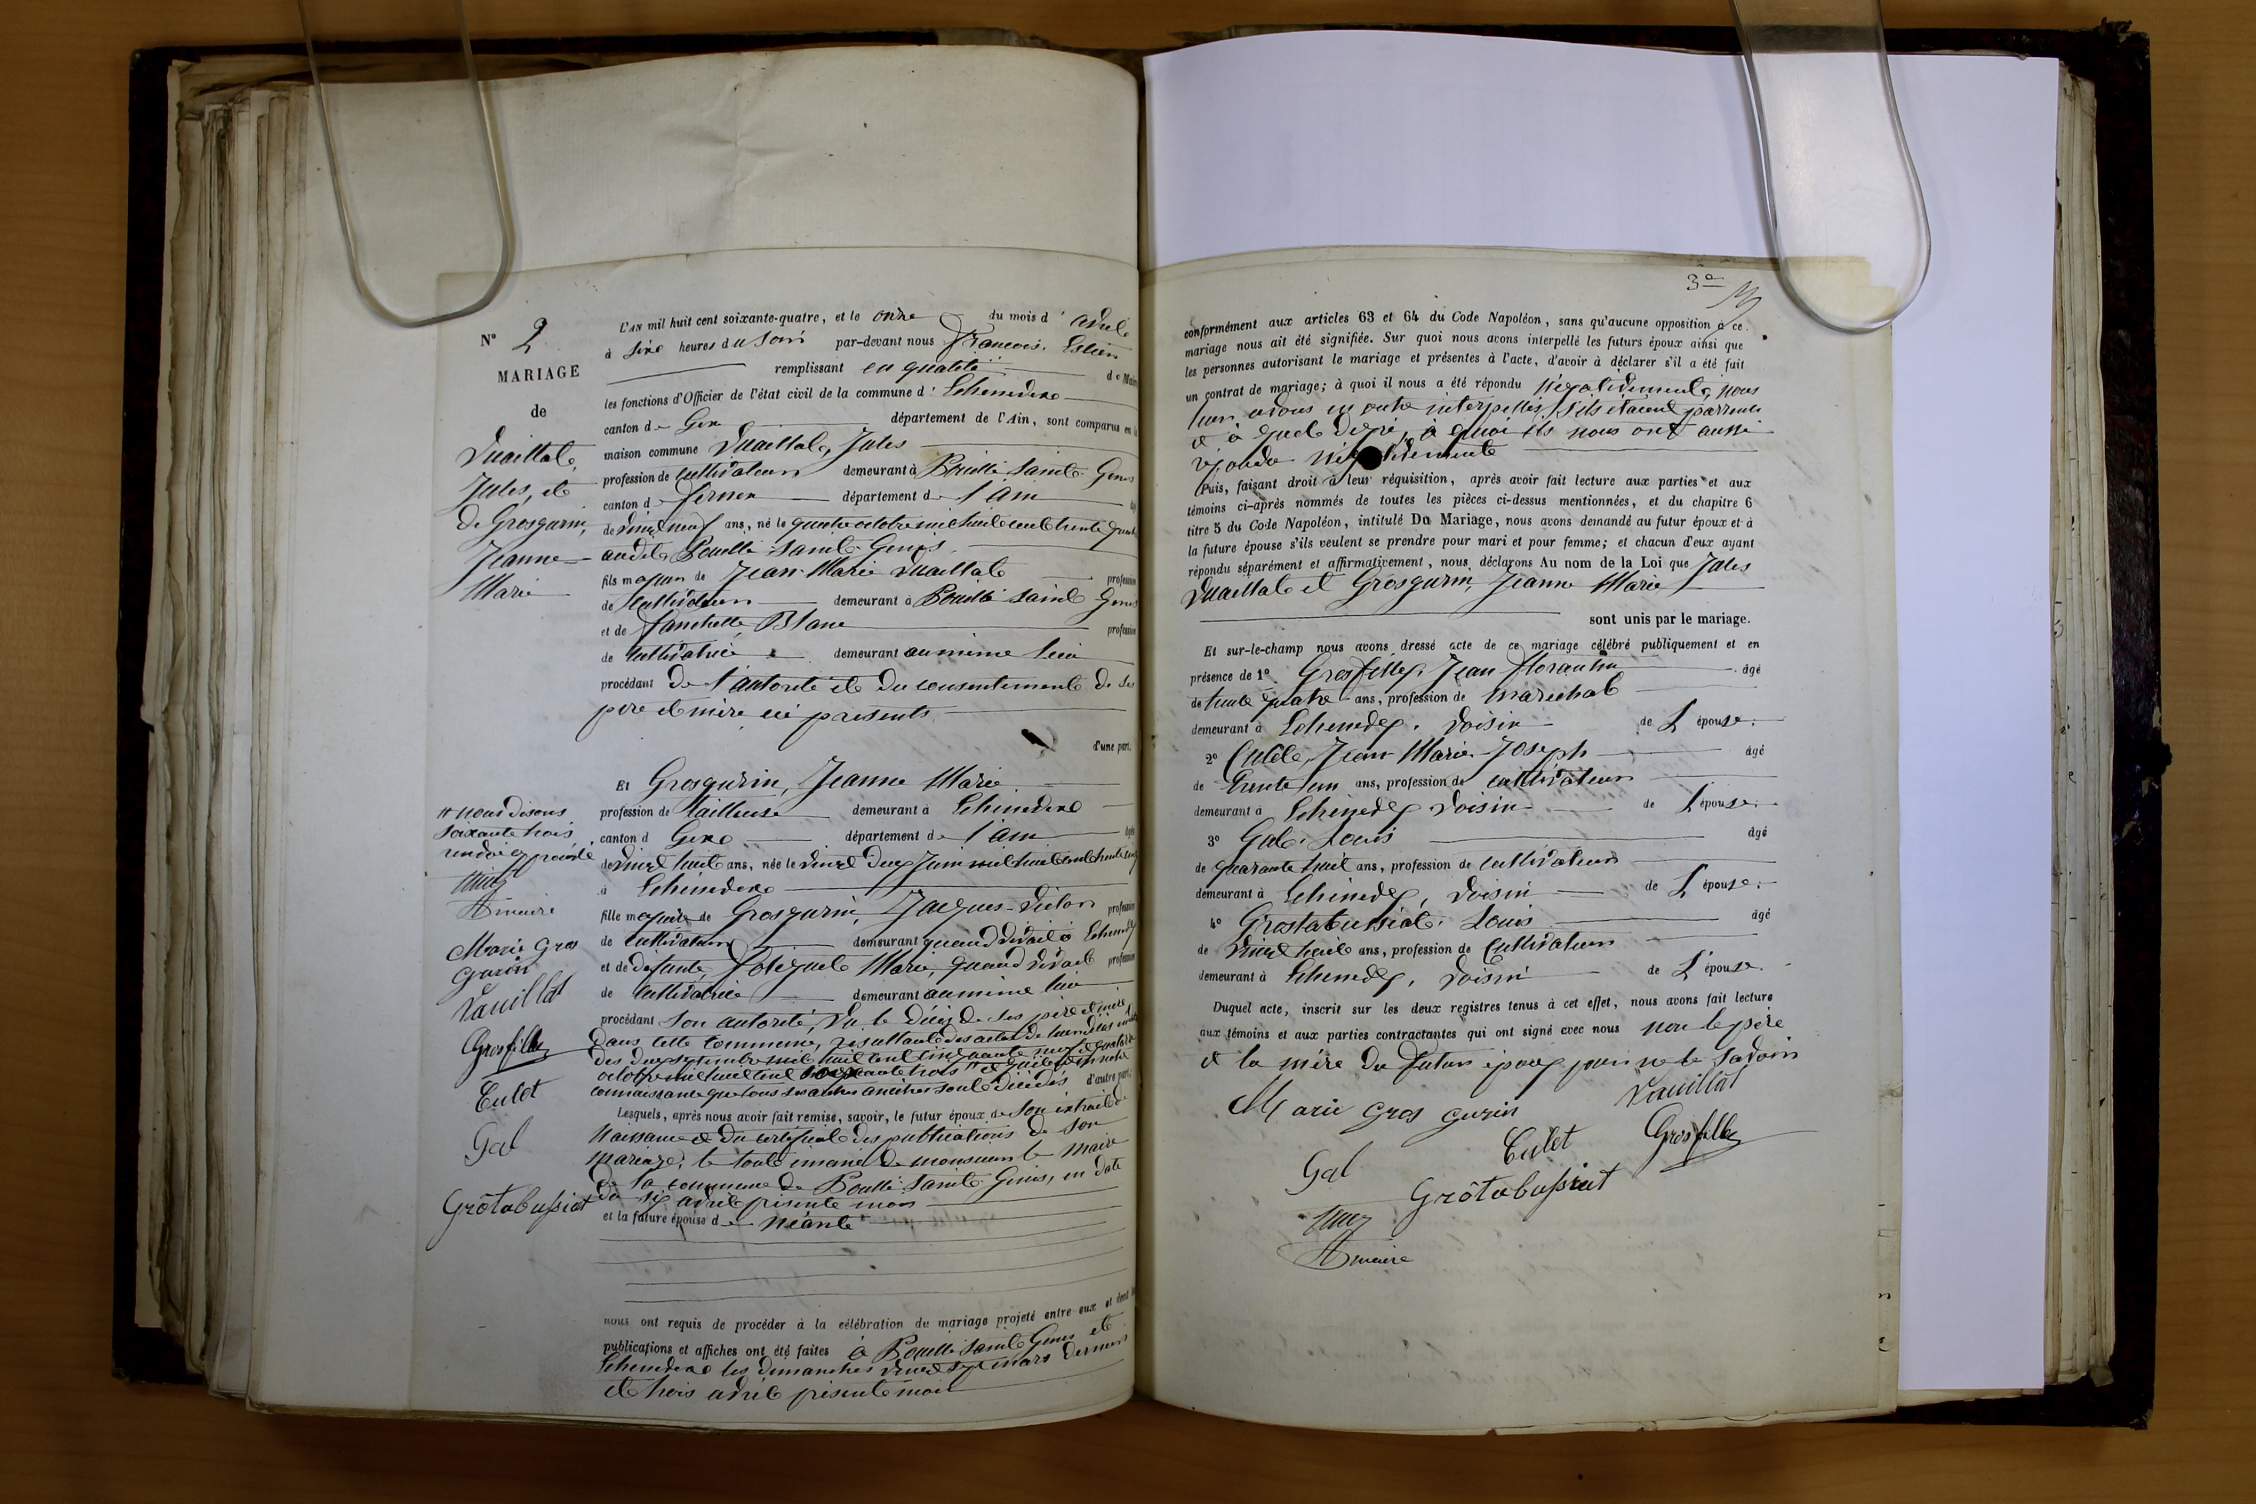 N° 2
MARIAGE
de
Vuaillat
Jules, et
de Grosgurin,
Jeanne
Marie
L'AN mil huit cent soixante-quatre, et le onze du mois d' avril
à sixe heures du soir par-devant nous François
remplissant en qualité de Maire
les fonctions d'Officier de l'état civil de la commune d' Echenevexe
canton de Gex département de l'Ain, sont comparus en la
maison commune Vuaillat, Jules
profession de cultivateur demeurant à Pouilli Saint Genis
canton de ferney département de l'ain
de vingt neuf ans, né le quatre octobre mil huit cent trente quatre
audit Pouilli Saint Genis
fils majeur de Jean Marie Vuaillat profession
de Cultivateur demeurant à Pouilli Saint Genis
et de fanchette Blanc profession
de Cultivatrice demeurant au même lieu
procédant de l'autorité et du consentement de ses
père et mère ici présents
d'une part.
Et Grosgurin, Jeanne Marie
profession de tailleuse demeurant à Echenevexe
canton d Gexe département de l'ain âgée
de vingt huit ans, née le vingt deux Juin mil huit cent trente cinq
à Echenevexe
fille majeure de Grosgurin, Jacques-Victor profession
de Cultivateur demeurant quand vivait à Echenevex
et de défunte, Marie, quand vivait profession
de Cultivatrice demeurant au même lieu
procédant son autorité, Vu le décès de ses père et mère
dans cette commune, résultant des actes de leur décès
des deux septembre mil huit cent cinquante neuf et quatorze
octobre mil huit cent soixante trois # et qu'il est à notre
connaissance que tous ses autres ancêtres sont décédés d'autre part.
Lesquels, après nous avoir fait remise, savoir, le futur époux de son extrait de
Naissance et du certificat des publications de son
mariage, le tout émané de monsieur le Maire
de la commune de Pouilli Saint Genis, en date
du six avril présente mois
et la future épouse de néante
nous ont requis de procéder à la célébration du mariage projeté entre eux et dont les
publications et affiches ont été faites à Pouilli Saint Genis et
Echenevexe les dimanches vingt sept mars dernier
et trois avril présent mois
# nous disons
soixante trois
maire
Marie Gros
gurin
Vauillat
Grosfilley
Culet
Gal
Grôtabussiat
3e
conformément aux articles 63 et 64 du Code Napoléon, sans qu'aucune opposition à ce
mariage nous ait été signifiée. Sur quoi nous avons interpellé les futurs époux ainsi que
les personnes autorisant le mariage et présentes à l'acte, d'avoir à déclarer s'il a été fait
un contrat de mariage; à quoi il nous a été répondu négativement, nous
leur avons en outre interpellés s'ils étaient parrents
et à quel degré, à quoi ils nous ont aussi
répondu négativement
Puis, faisant droit à leur réquisition, après avoir fait lecture aux parties et aux
témoins ci-après nommés de toutes les pièces ci-dessus mentionnées, et du chapitre 6
titre 5 du Code Napoléon, intitulé Du Mariage, nous avons demandé au futur époux et à
la future épouse s'ils veulent se prendre pour mari et pour femme; et chacun d'eux ayant
répondu séparément et affirmativement, nous, déclarons Au nom de la Loi que Jules
Vuaillat et Grosgurin, Jeanne Marie
sont unis par le mariage.
Et sur-le-champ nous avons dressé acte de ce mariage célébré publiquement et en
présence de 1° Grosfilley, Jean Florantin âgé
de trente quatre ans, profession de maréchal
demeurant à Echenevex, voisin de L'épouse.
2° Culet, Jean Marie Joseph âgé
de Trente un ans, profession de cultivateur
demeurant à Echenevex voisin de L'épouse.
3° Gal, Louis âgé
de quarante huit ans, profession de cultivateur
demeurant à Echenevex, voisin de L'épouse.
4° Grostabussiat, Louis âgé
de Vingt huit ans, profession de Cultivateur
demeurant à Echenevex, voisin de L'épouse.
Duquel acte, inscrit sur les deux registres tenus à cet effet, nous avons fait lecture
aux témoins et aux parties contractantes qui ont signé avec nous non le père
et la mère du futur époux pour ne le savoir
Marie gros gurin
Vauillat
Culet
Grosfilley
Gal
Grôtabussiat
maire